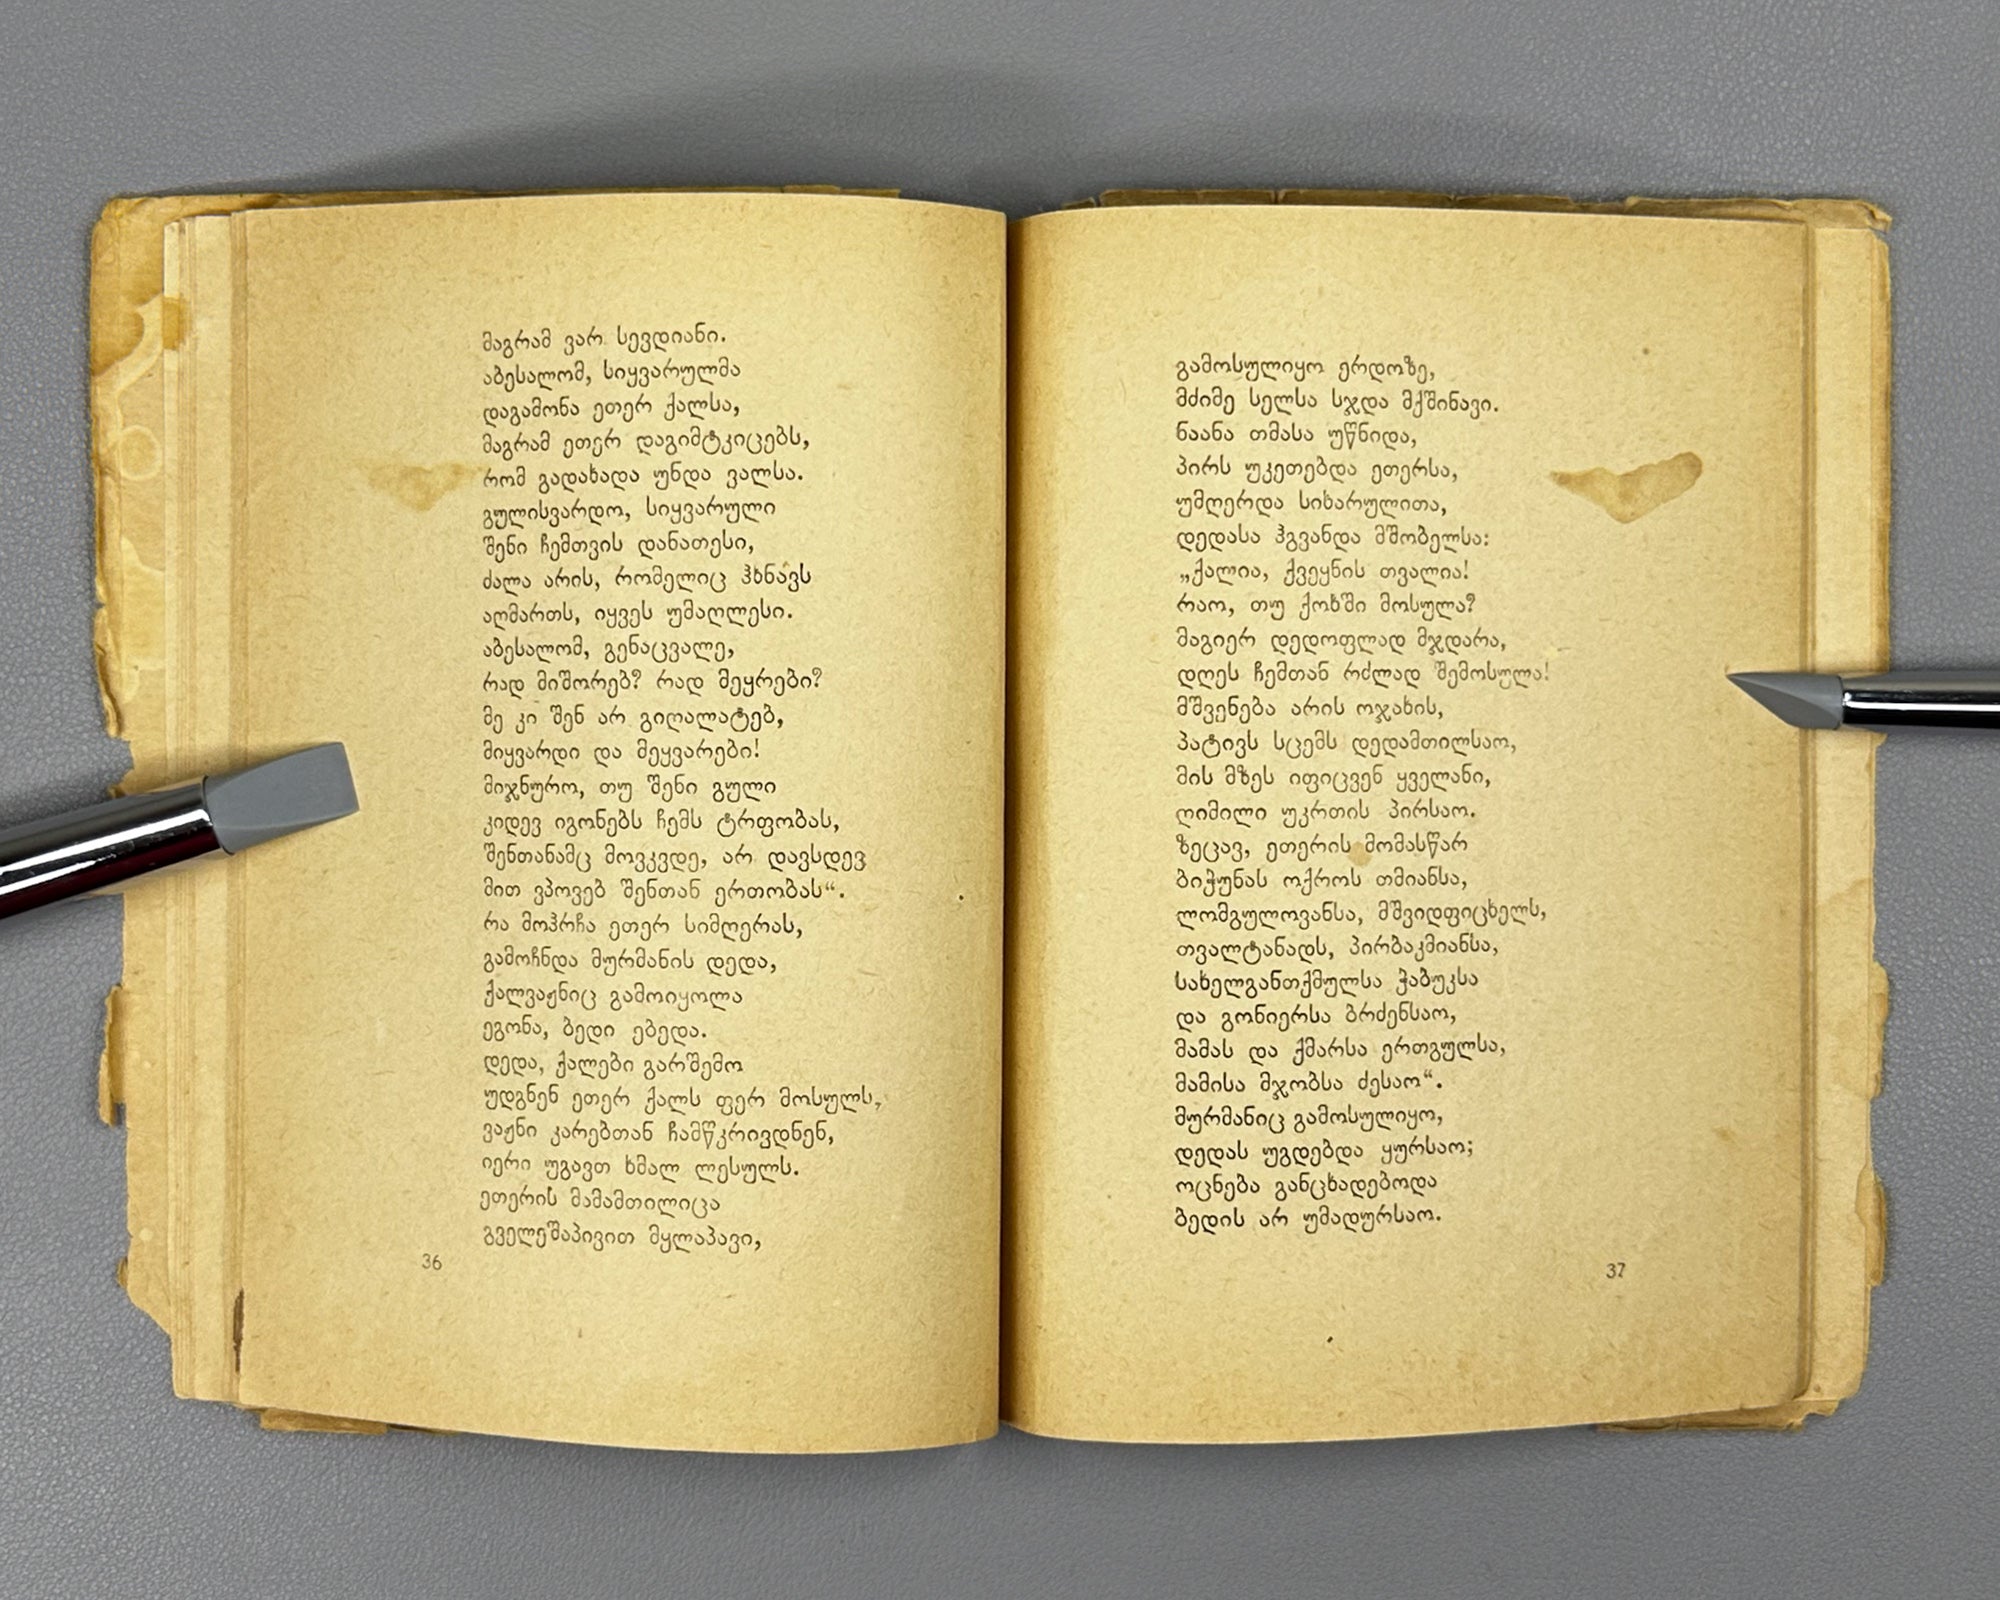 მაგრამ ვარ სევდიანი.
აბესალომ, სიყვარულმა
დაგამონა ეთერ ქალსა,
მაგრამ ეთერ დაგიმტკიცებს,
რომ გადახადა უნდა ვალსა.
გულისვარდო, სიყვარული
შენი ჩემთვის დანათესი,
ძალა არის, რომელიც ჰხნავს
აღმართს, იყვეს უმაღლესი.
აბესალომ, გენაცვალე,
რად მიშორებ? რად მეყრები?
მე კი შენ არ გიღალატებ,
მიყვარდი და მეყვარები!
მიჯნურო, თუ შენი გული
კიდევ იგონებს ჩემს ტრფობას,
შენთანამც მოვკვდე, არ დავსდევ
მით ვპოვებ შენთან ერთობას“.
რა მოჰრჩა ეთერ სიმღერას,
გამოჩნდა მურმანის დედა,
ქალვაჟნიც გამოიყოლა
ეგონა, ბედი ებედა.
დედა, ქალები გარშემო
უდგნენ ეთერ ქალს ფერ მოსულს,
ვაჟნი კარებთან ჩამწკრივდნენ,
იერი უგავთ ხმალ ლესულს.
ეთერის მამამთილიცა
გველეშაპივით მყლაპავი,
36
გამოსულიყო ერდოზე,
მძიმე სელსა სჯდა მქშინავი.
ნაანა თმასა უწნიდა,
პირს უკეთებდა ეთერსა,
უმღერდა სიხარულითა,
დედასა ჰგვანდა მშობელსა:
„ქალია, ქვეყნის თვალია!
რაო, თუ ქოხში მოსულა?
მაგიერ დედოფლად მჯდარა,
დღეს ჩემთან რძლად შემოსულა!
მშვენება არის ოჯახის,
პატივს სცემს დედამთილსაო,
მის მზეს იფიცვენ ყველანი,
ღიმილი უკრთის პირსაო.
ზეცავ, ეთერის მომასწარ
ბიჭუნას ოქროს თმიანსა,
ლომგულოვანსა, მშვიდფიცხელს,
თვალტანადს, პირბაკმიანსა,
სახელგანთქმულსა ჭაბუკსა
და გონიერსა ბრძენსაო,
მამას და ქმარსა ერთგულსა,
მამისა მჯობსა ძესაო“.
მურმანიც გამოსულიყო,
დედას უგდებდა ყურსაო;
ოცნება განცხადებოდა
ბედის არ უმადურსაო.
37